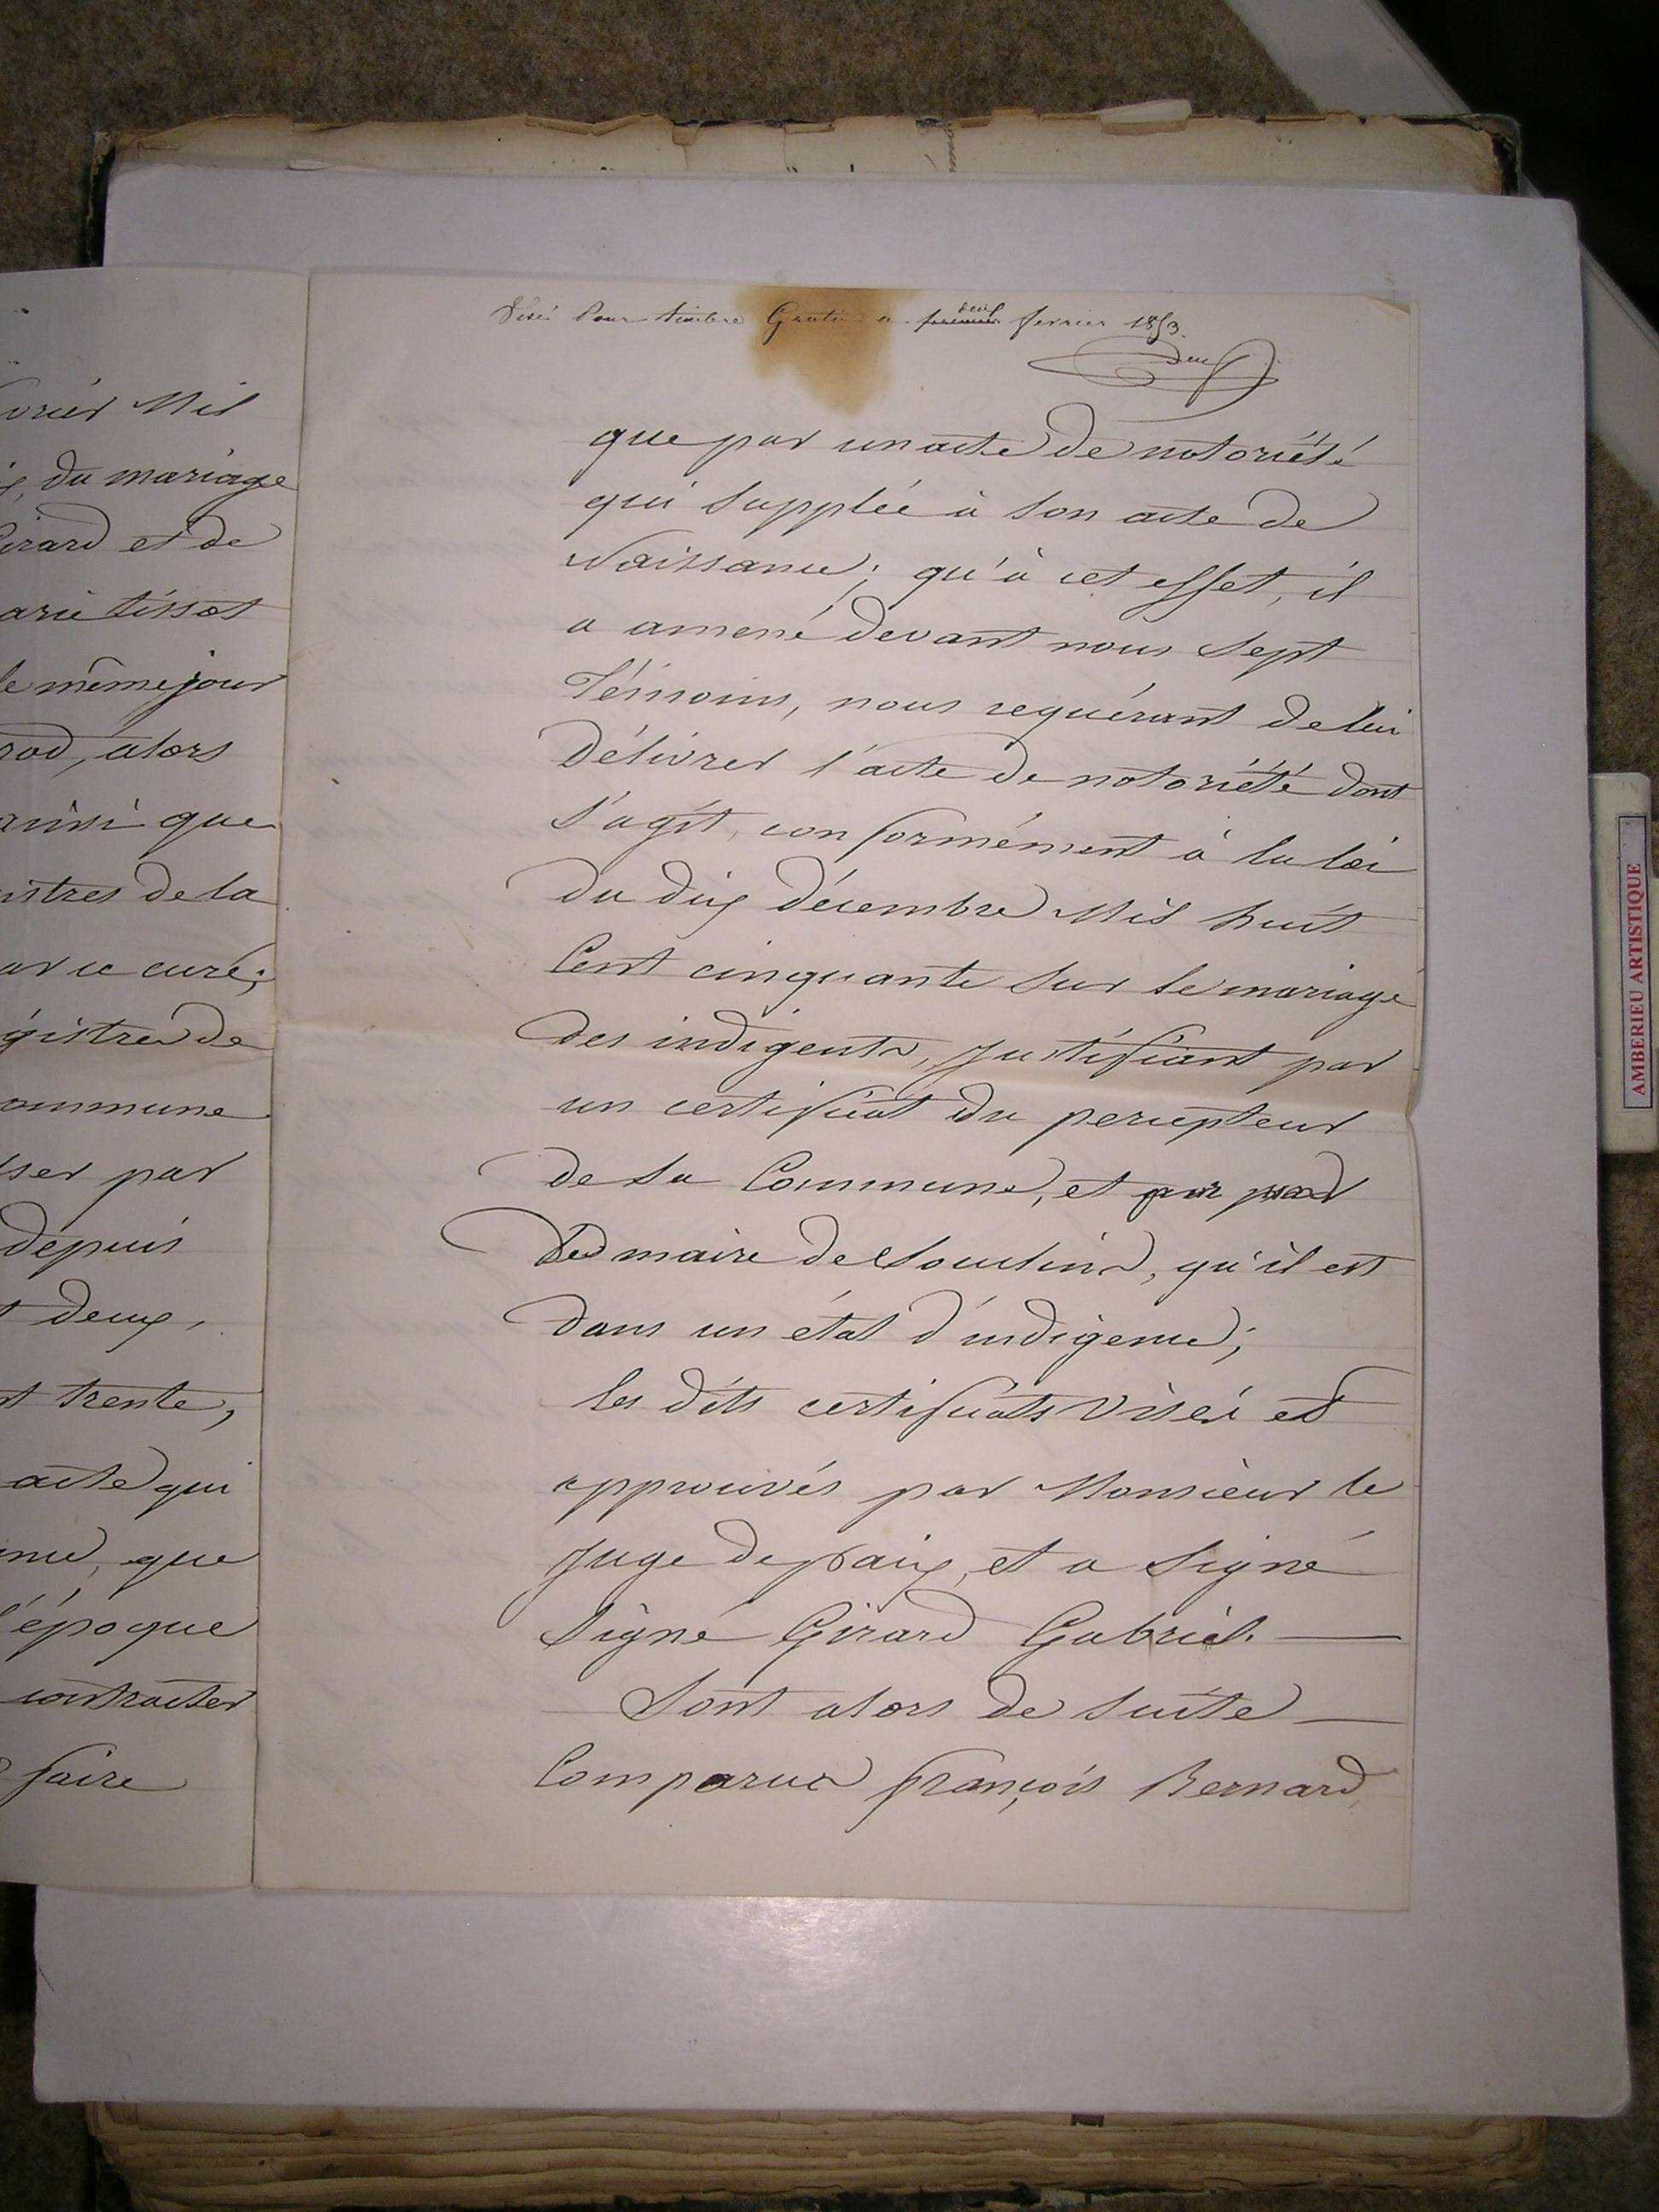 vrier Mil
du mariage
Girard et de
arie tissot
le même jour
rod, alors
ainsi que
istres de la
ar ce curé;
gistres de
ommune
ser par
depuis
t deux,
nt trente,
acte qui
que
l'époque
contracter
faire
Visé Pour timbre Gratis a premier deux fevrier 1853.
que par un acte de notoriété
qui supplée à son acte de
Naissance; qu'à cet effet, il
a amené devant nous sept
Témoins, nous requérant de lui
délivrer l'acte de notoriété dont
s'agit, conformément à la loi
du dix décembre Mil huit
Cent cinquante sur le mariage
des indigents, justifiant par
un certificat du percepteur
de sa Commune, et par
maire de Soudine, qu'il est
dans un état d'indigence;
les dits certificats Visés et
approuvés par Monsieur le
Juge de paix, et a signé
signé Girard Gabriel. —
— Sont alors de suite —
Comparus françois Bernard,
AMBERIEU ARTISTIQUE